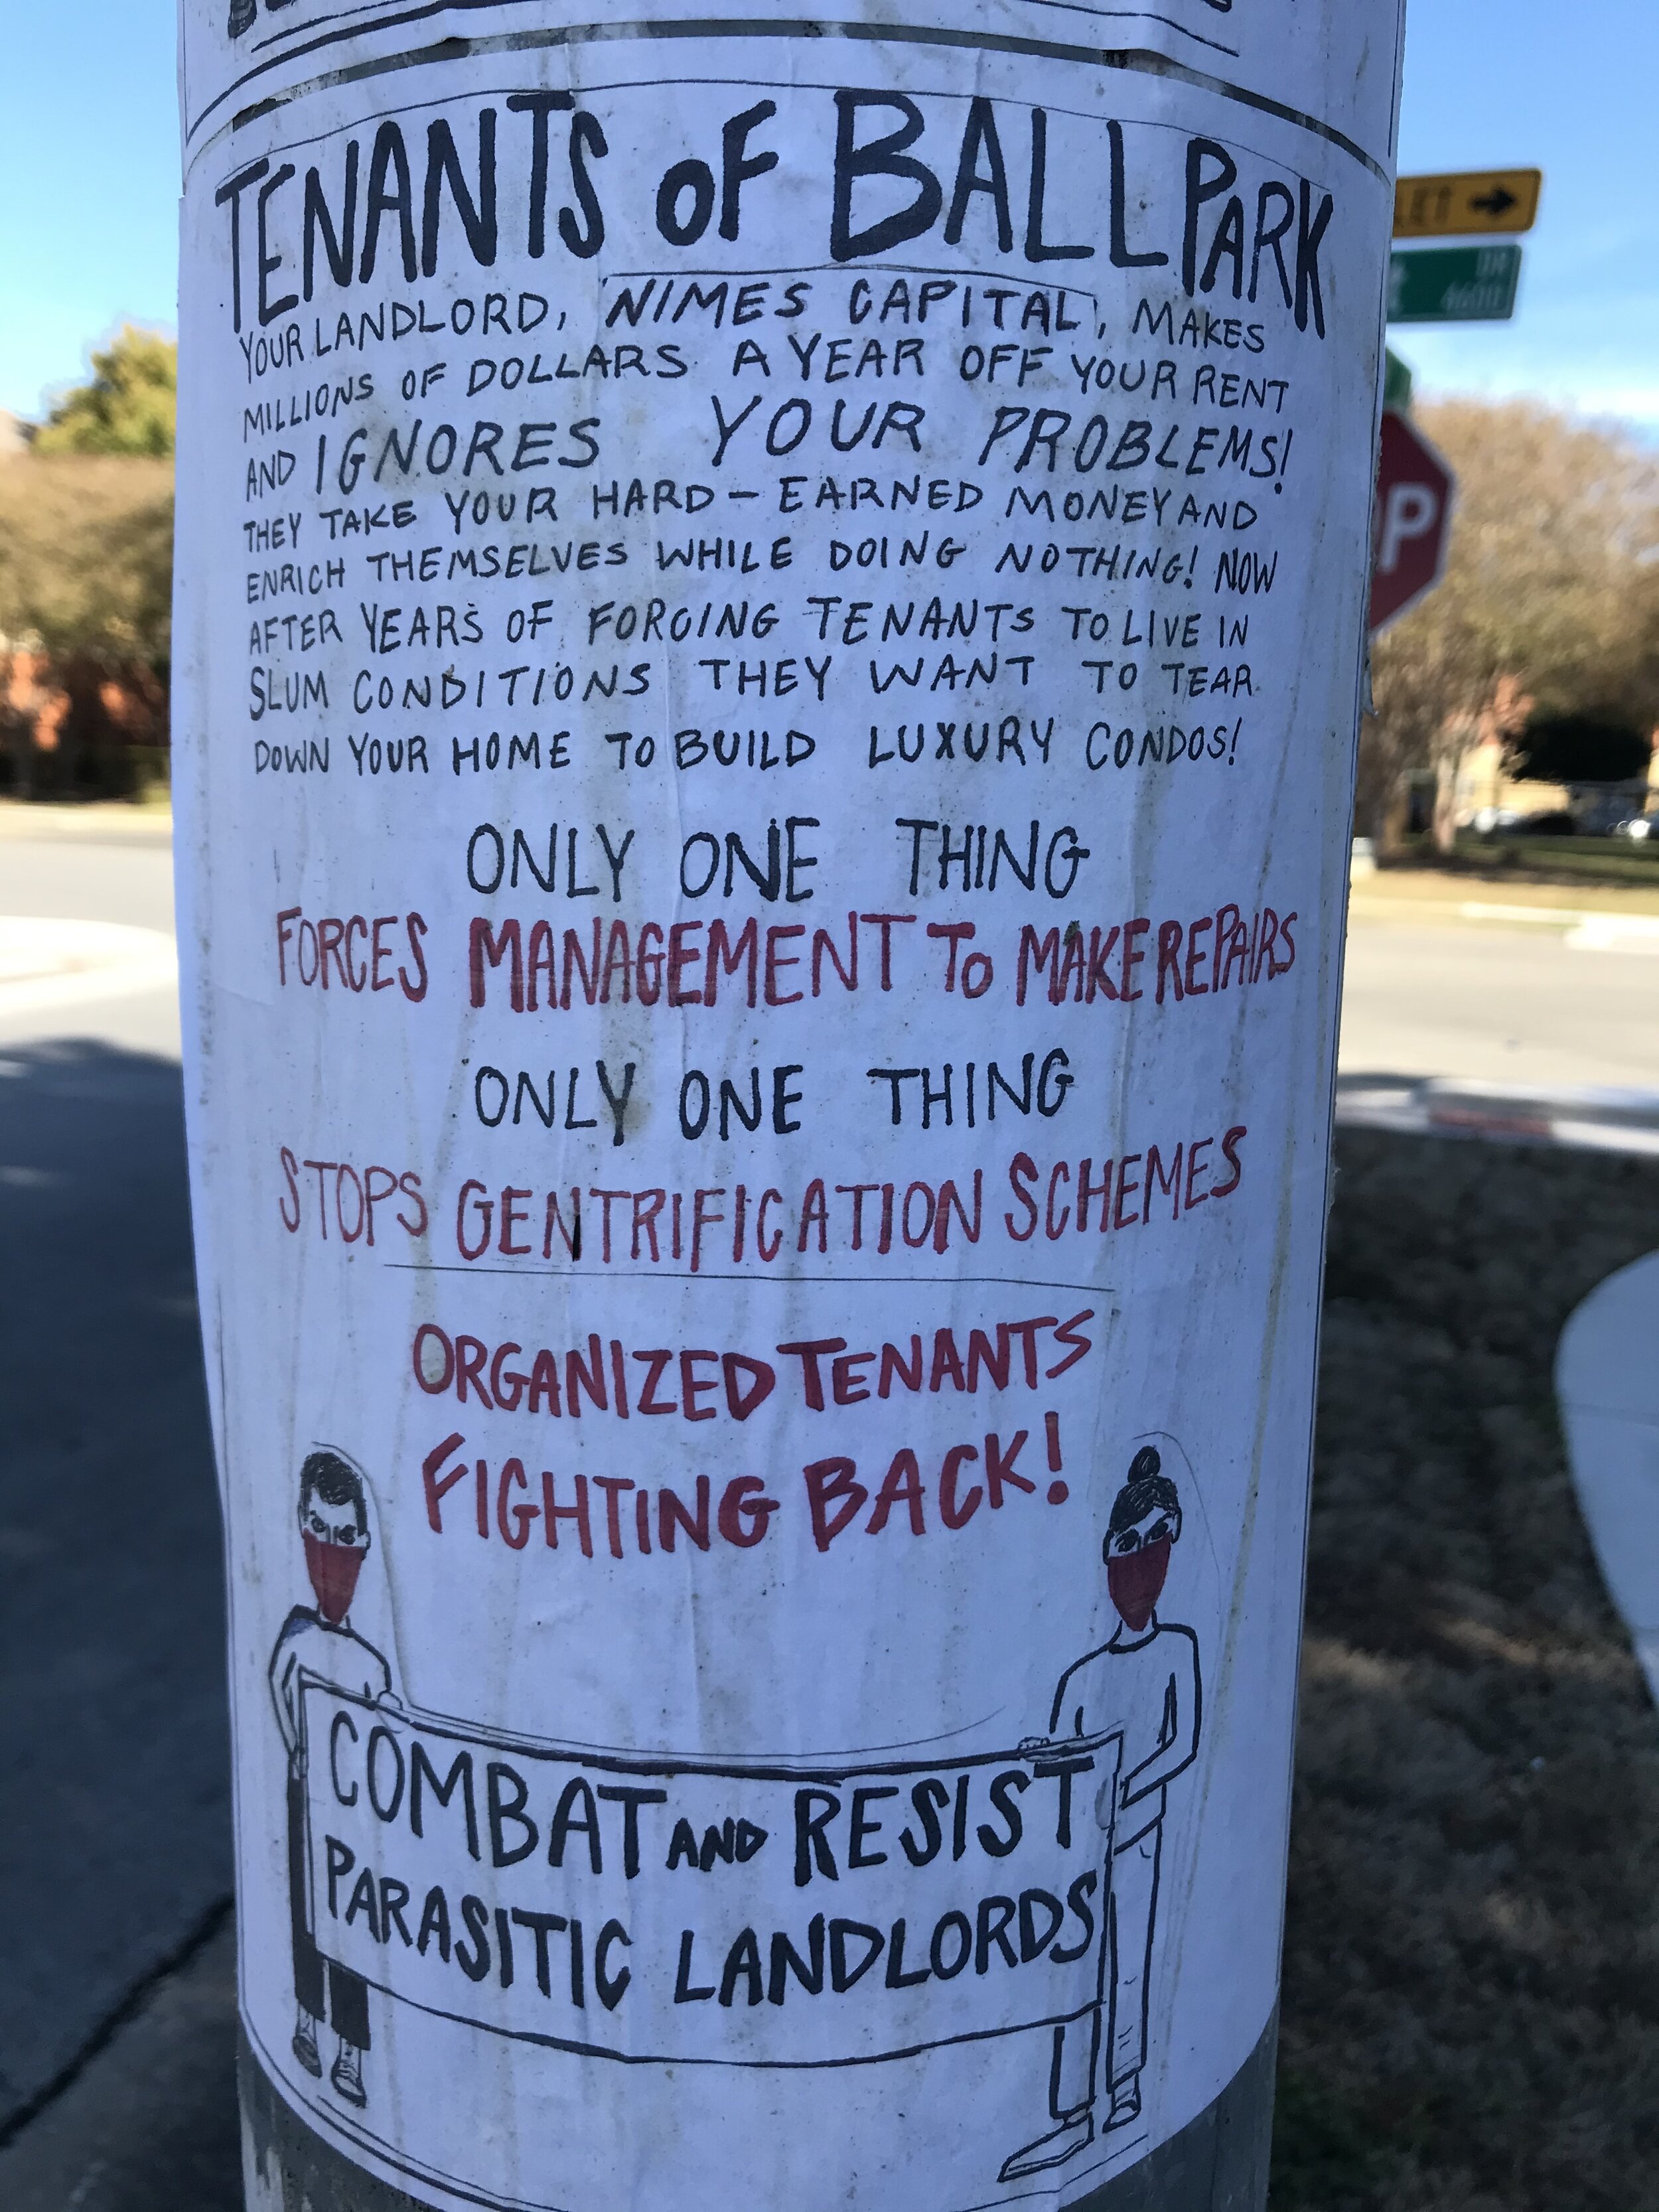 TENANTS OF BALLPARK
YOUR LANDLORD, NIMES CAPITAL, MAKES
MILLIONS OF DOLLARS A YEAR OFF YOUR RENT
AND IGNORES YOUR PROBLEMS!
THEY TAKE YOUR HARD-EARNED MONEY AND
ENRICH THEMSELVES WHILE DOING NOTHING! NOW
AFTER YEARS OF FORCING TENANTS TO LIVE IN
SLUM CONDITIONS THEY WANT TO TEAR
DOWN YOUR HOME TO BUILD LUXURY CONDOS!
ONLY ONE THING
FORCES MANAGEMENT TO MAKE REPAIRS
ONLY ONE THING
STOPS GENTRIFICATION SCHEMES
ORGANIZED TENANTS
FIGHTING BACK!
COMBAT AND RESIST
PARASITIC LANDLORDS